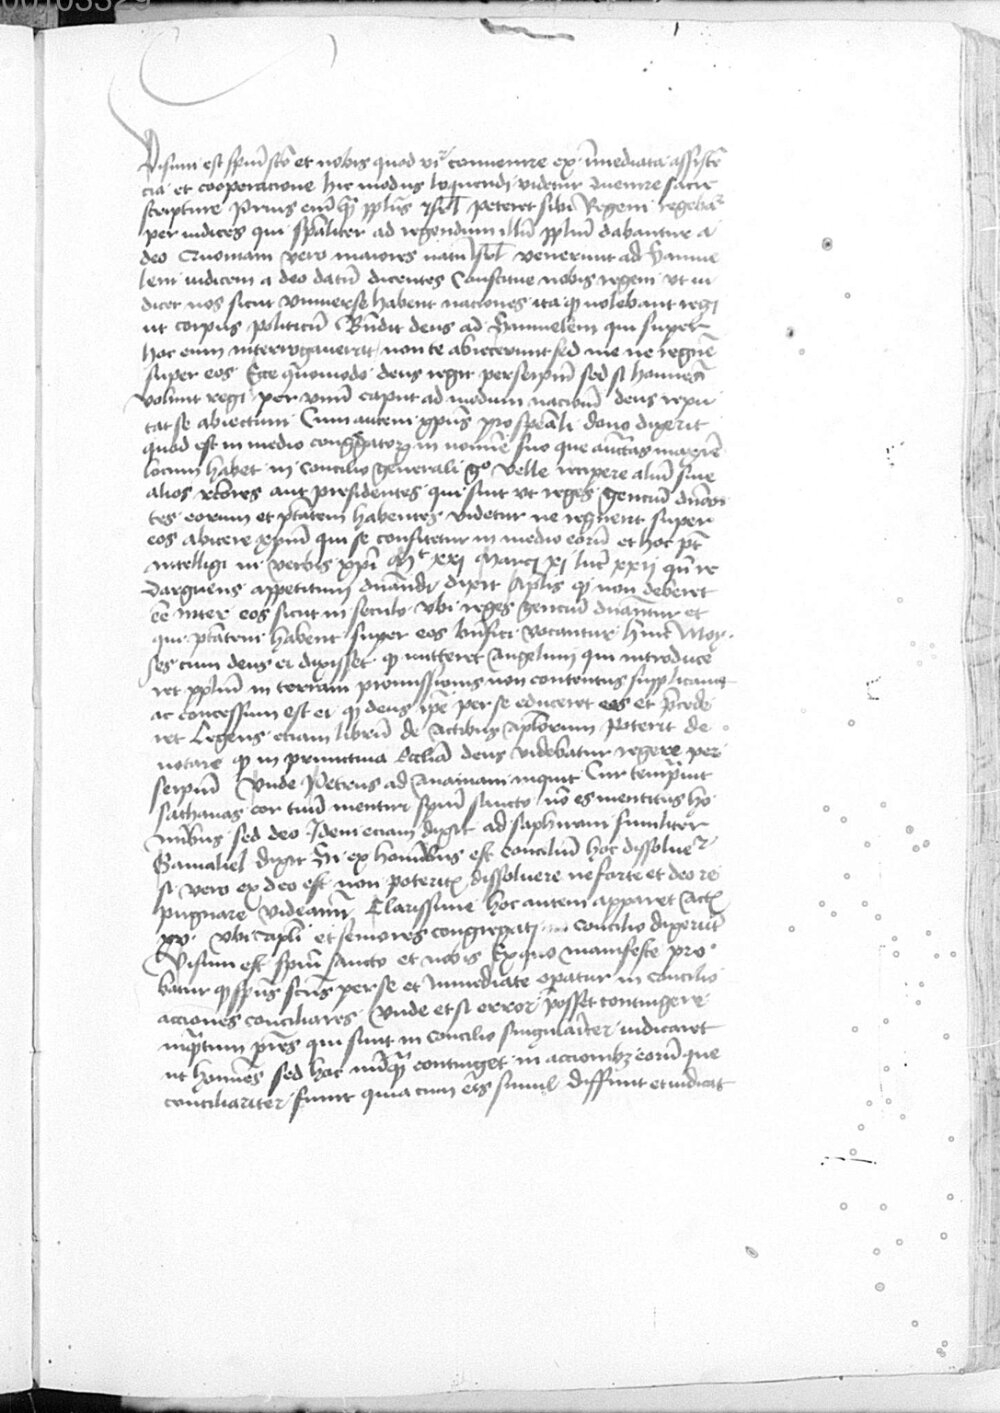 00103329
Visum est spũi scõ et nobis quod vr̃ conuenire ex ĩmediata assistẽ
cia et cooperacione hic modus loquendi videtur ꝯuenire sacre
scripture Prius eniʒ qñ pplũs isrl̃ peteret sibi Regem regebat͛
per iudices qui spãliter ad regendum illũ pplũm dabantur a
deo Quoniam vero maiores natu isrl̃ venerunt ad Samue
lem iudicem a deo datũ dicentes Constitue nobis regem vt iu
dicet nos sicut vniuerse habent naciones ita qͥ nolebant regi
ut corpus politicũ Rñdit deus ad Samuelem qui super
hoc eum interrogauerat non te abiecerunt sed me ne regnẽ
super eos Ecce quomodo deus regit per se ipm̃ sed si homines
volunt regi per vnũ caput ad modum nacionũ deus repu
tat se abiectum Cum autem xpũs pro speãli dono dixerit
quod est in medio congregatorꝫ in nomĩe suo que auctãs maxĩe
locum habet in concilio generali gͦ velle recipere aliũ siue
alios rectores aut presidentes qui sint vt reges gencium dñan
tes eorum et ptãtem habentes videtur ne regnent super
eos abicere xpm̃ qui se confitetur in medio eorũ et hoc pt̃
intelligi in verbis xpĩ Mͭ xxi Marci xi luc̃ xxii qñ re
darguens appetitum dñandi dixit aplĩs qͥ non deberet
eẽ inter eos sicut in seculo vbi reges gencium dñantur et
qui ptãtem habent super eos bñfici vocantur hinc Moy
ses cum deus ei dixisset qͥ mitteret Angelum qui introduce
ret pplũm in terram promissionis non contentus supplicauit
ac concessum est ei qͥ deus ip̃e per se educeret eos et p̃cede
ret Legens eciam librũ de Actibus aplorum poterit de
notare qͥ in primitiua Ecclĩa deus videbatur regere per
seipm̃ Vnde Petrus ad Ananiam inquit Cur temptauit
sathanas cor tuũ mentiri spũi sancto nõ es mentitus ho
minibus sed deo Idem eciam dixit ad saphiram similiter
Gamaliel dixit Si ex hominibus est concilium hoc dissoluet͛
si vero ex deo est non poteritis dissoluere ne forte et deo re
pugnare videamĩ Clarissime hoc autem apparet Act̃
xv. vbi apl̃i et seniores congregati in concilio dixerũt
Visum est spũi sancto et nobis Ex quo manifeste pro
batur qͥ spũs scũs per se et immediate opatur in concilio
acciones conciliares Vnde etsi error posset contingere
inquãtum prẽs qui sunt in concilio singulariter iudicaret
ut homines sed hoc nũqͣ continget in accionibꝫ eorũ que
conciliariter fiunt quia cum eis simul diffinit et iudicat